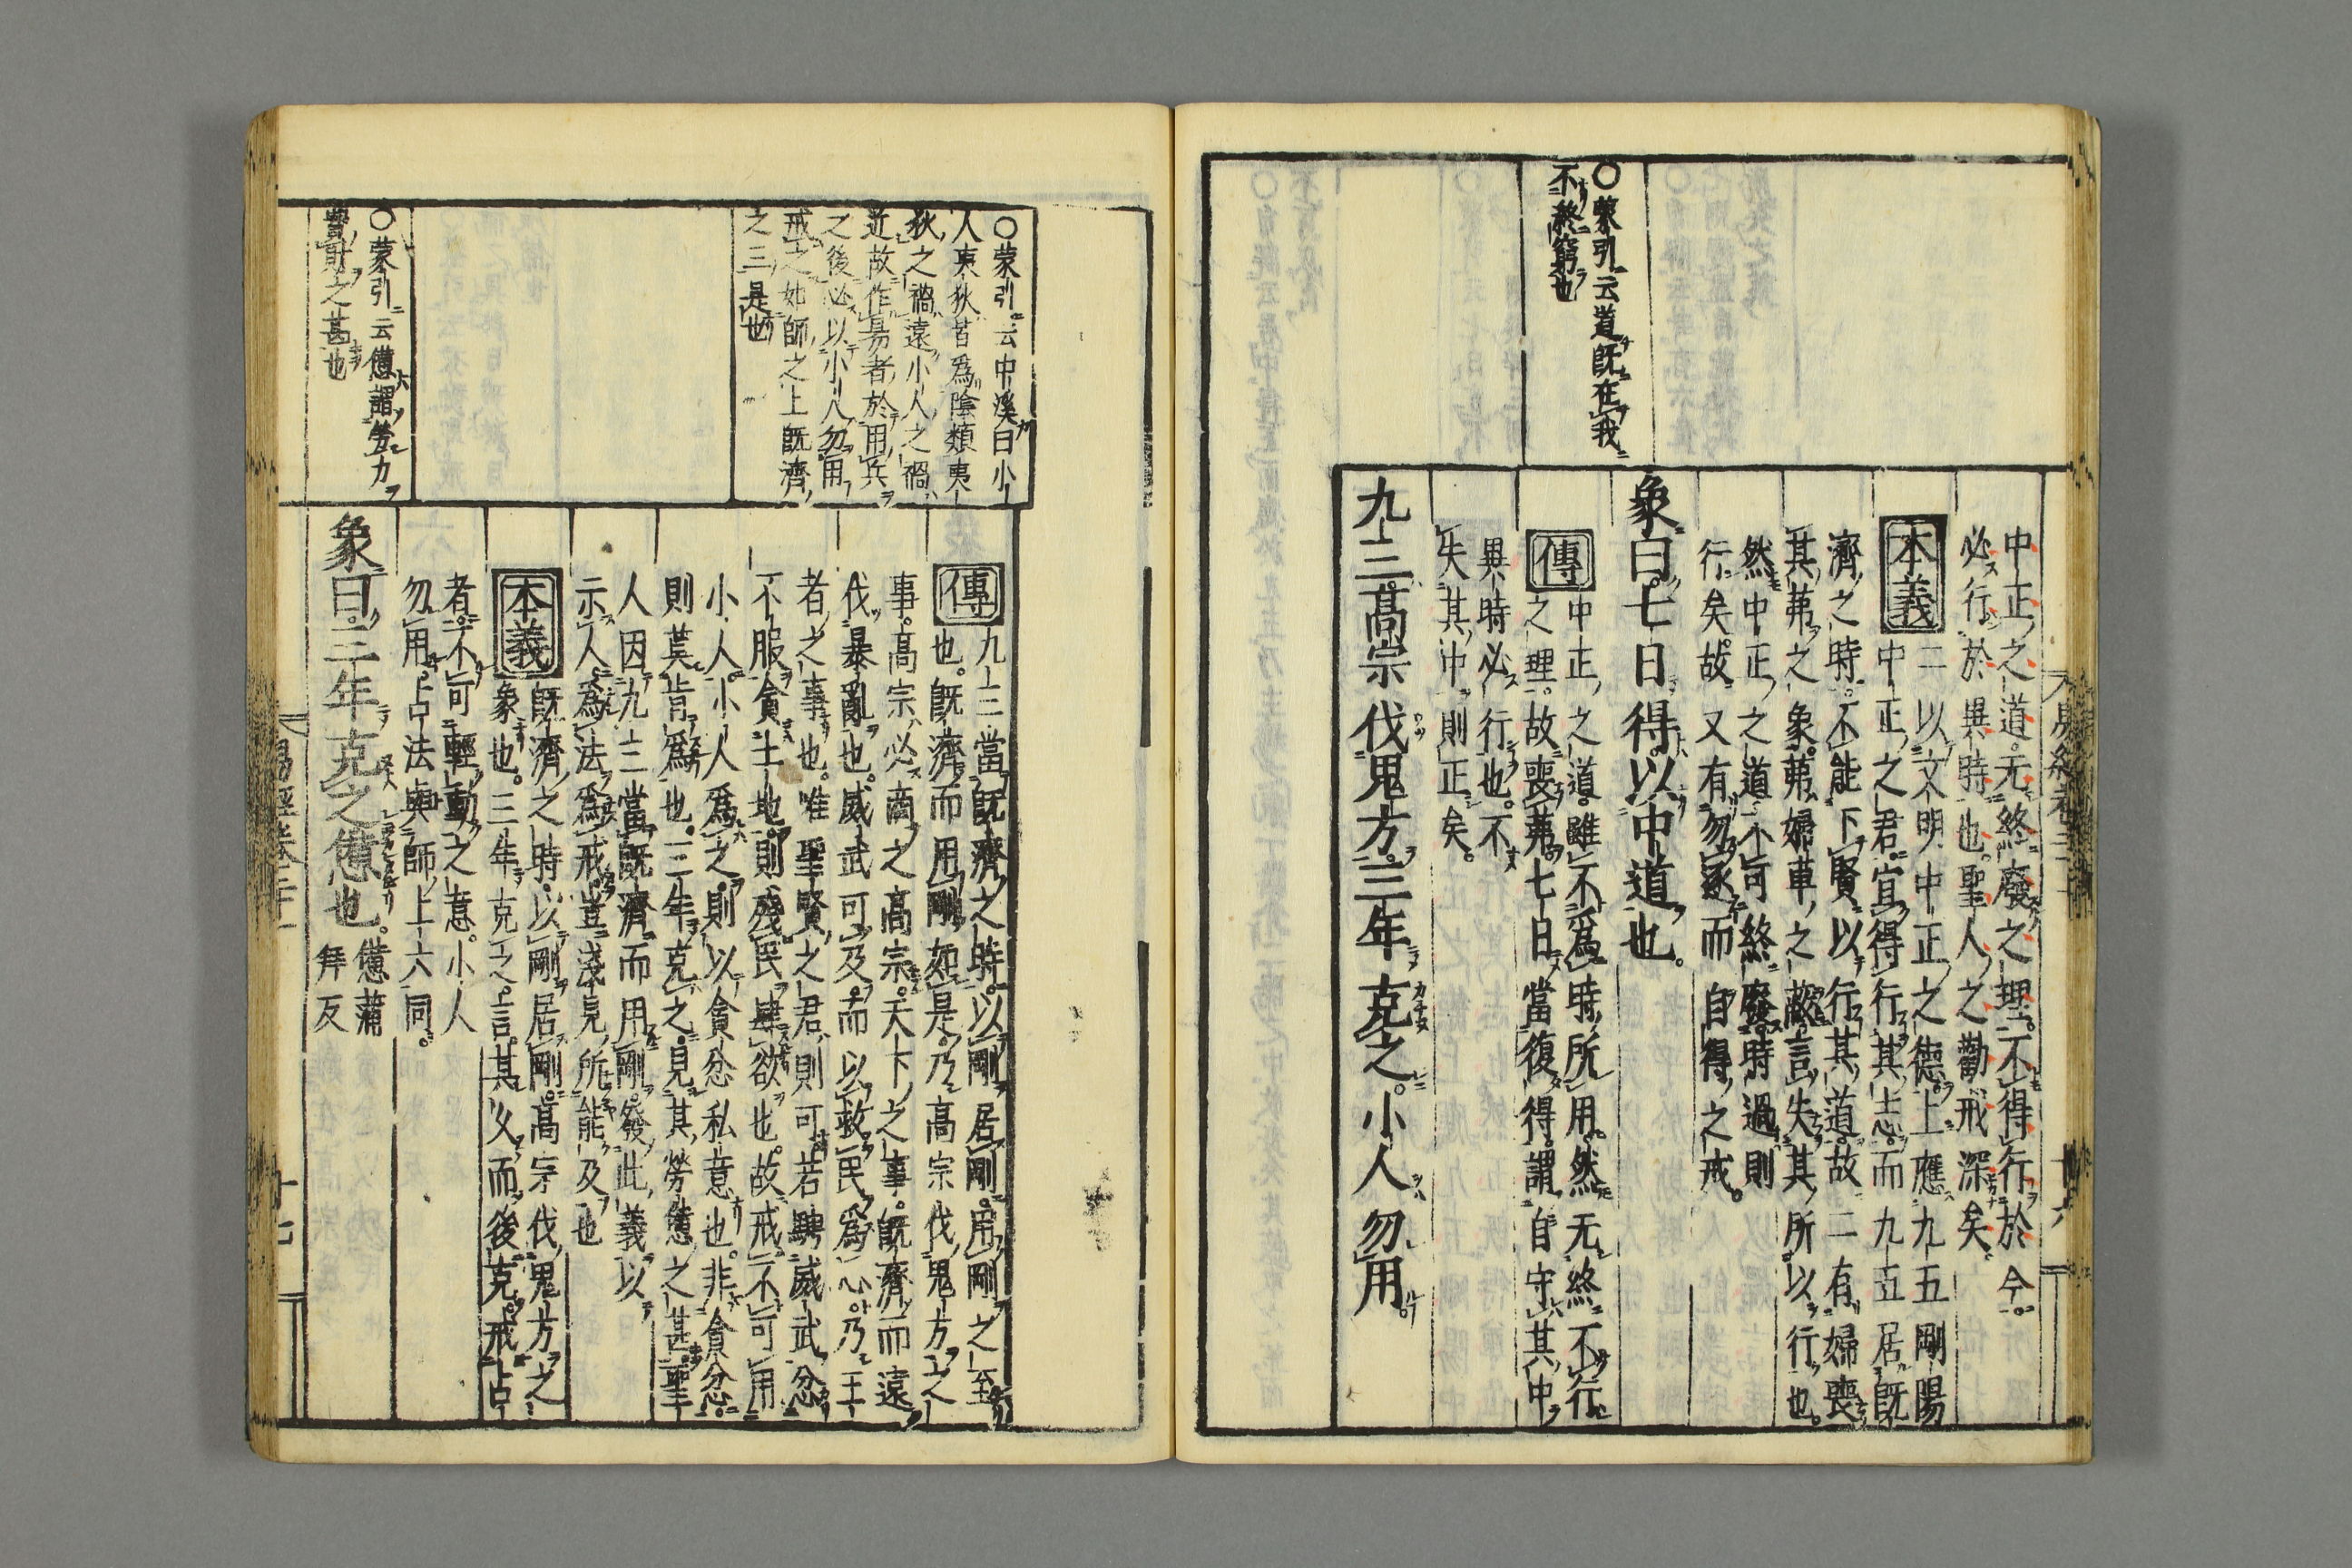 中正之道无終廢之理不得行於今
必行於異時也聖人之勸戒深矣
本義 二以文明中正之德上應九五剛陽
中正之君宜得行其志而九五居旣
濟之時不能下賢以行其道故二有婦喪
其茀之象茀婦車之蔽言失其所以行也
然中正之道不可終廢時過則
行矣故又有勿逐而自得之戒
○蒙引云道旣在我
不終窮也
象曰七日得以中道也
傳 中正之道雖不爲時所用然无終不行
之理故喪茀七日當復得謂自守其中
異時必行也不
失其中則正矣
九三高宗伐鬼方三年克之小人勿用
○蒙引云中溪曰小
人夷狄皆爲陰類夷
狄之禍遠小人之禍
近故作易者於用兵
之後必以小人勿用
戒之如師之上旣濟
之三是也
傳 九三當旣濟之時以剛居剛用剛之至
也旣濟而用剛如是乃高宗伐鬼方之
事高宗必商之高宗天下之事旣濟而遠
伐暴亂也威武可及而以救民爲心乃王
者之事也唯聖賢之君則可若騁威武忿
不服貪土地則殘民肆欲也故戒不可用
小人小人爲之則以貪忿私意也非貪忿
則莫肯爲也三年克之見其勞憊之甚聖
人因九三當旣濟而用剛發此義以
示人爲法爲戒豈淺見所能及也
本義 旣濟之時以剛居剛高宗伐鬼方之
象也三年克之言其久而後克戒占
者不可輕動之意小人
勿用占法與師上六同
○蒙引云憊謂勞力
費財之甚也
象曰三年克之憊也 憊蒲
拜反
易經卷二十
十七